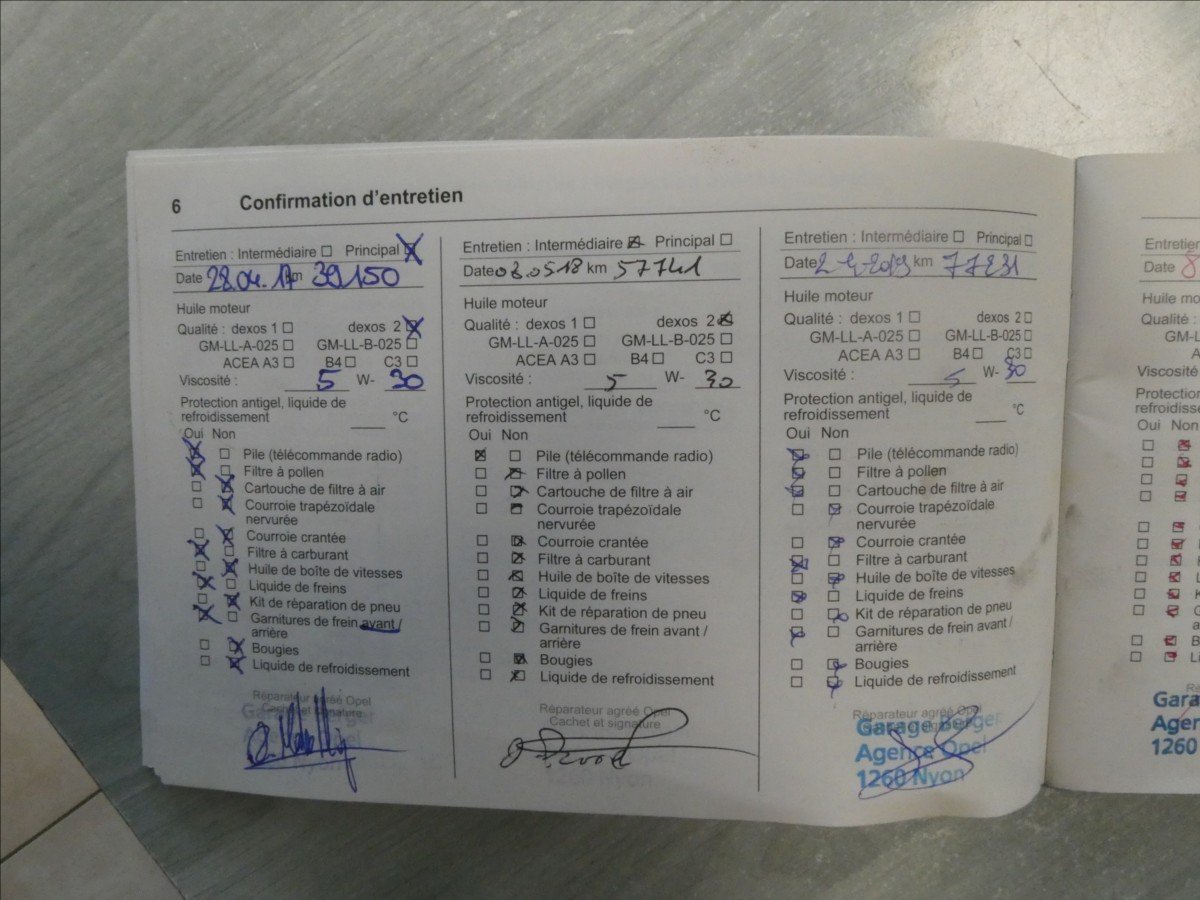 6 Confirmation d'entretien
Entretien : Intermédiaire ☐ Principal ☒
Date 28.04.17 km 39150
Huile moteur
Qualité : dexos 1 ☐ dexos 2 ☒
GM-LL-A-025 ☐ GM-LL-B-025 ☐
ACEA A3 ☐ B4 ☐ C3 ☐
Viscosité : 5 W- 30
Protection antigel, liquide de
refroidissement ____ °C
Oui Non
☒ ☐ Pile (télécommande radio)
☒ ☐ Filtre à pollen
☐ ☒ Cartouche de filtre à air
☐ ☒ Courroie trapézoïdale
nervurée
☐ ☒ Courroie crantée
☒ ☐ Filtre à carburant
☐ ☒ Huile de boîte de vitesses
☒ ☐ Liquide de freins
☐ ☒ Kit de réparation de pneu
☒ ☐ Garnitures de frein avant /
arrière
☐ ☒ Bougies
☐ ☒ Liquide de refroidissement
Réparateur agréé Opel
Cachet et signature
Entretien : Intermédiaire ☒ Principal ☐
Date 03.05.18 km 57741
Huile moteur
Qualité : dexos 1 ☐ dexos 2 ☒
GM-LL-A-025 ☐ GM-LL-B-025 ☐
ACEA A3 ☐ B4 ☐ C3 ☐
Viscosité : 5 W- 30
Protection antigel, liquide de
refroidissement ____ °C
Oui Non
☒ ☐ Pile (télécommande radio)
☐ ☒ Filtre à pollen
☐ ☒ Cartouche de filtre à air
☐ ☒ Courroie trapézoïdale
nervurée
☐ ☒ Courroie crantée
☐ ☒ Filtre à carburant
☐ ☒ Huile de boîte de vitesses
☐ ☒ Liquide de freins
☐ ☒ Kit de réparation de pneu
☐ ☒ Garnitures de frein avant /
arrière
☐ ☒ Bougies
☐ ☒ Liquide de refroidissement
Réparateur agréé Opel
Cachet et signature
Entretien : Intermédiaire ☐ Principal ☐
Date km 77231
Huile moteur
Qualité : dexos 1 ☐ dexos 2 ☐
GM-LL-A-025 ☐ GM-LL-B-025 ☐
ACEA A3 ☐ B4 ☐ C3 ☐
Viscosité : 5 W- 30
Protection antigel, liquide de
refroidissement ____ °C
Oui Non
☒ ☐ Pile (télécommande radio)
☒ ☐ Filtre à pollen
☒ ☐ Cartouche de filtre à air
☐ ☒ Courroie trapézoïdale
nervurée
☐ ☒ Courroie crantée
☒ ☐ Filtre à carburant
☐ ☒ Huile de boîte de vitesses
☒ ☐ Liquide de freins
☐ ☒ Kit de réparation de pneu
☒ ☐ Garnitures de frein avant /
arrière
☐ ☒ Bougies
☐ ☒ Liquide de refroidissement
Réparateur agréé Opel
Garage Berger
Agence Opel
1260 Nyon
Entretien
Date 8
Huile mo
Qualité :
GM-L
AC
Viscosité
Protection
refroidiss
Oui Non
Gara
Agen
1260